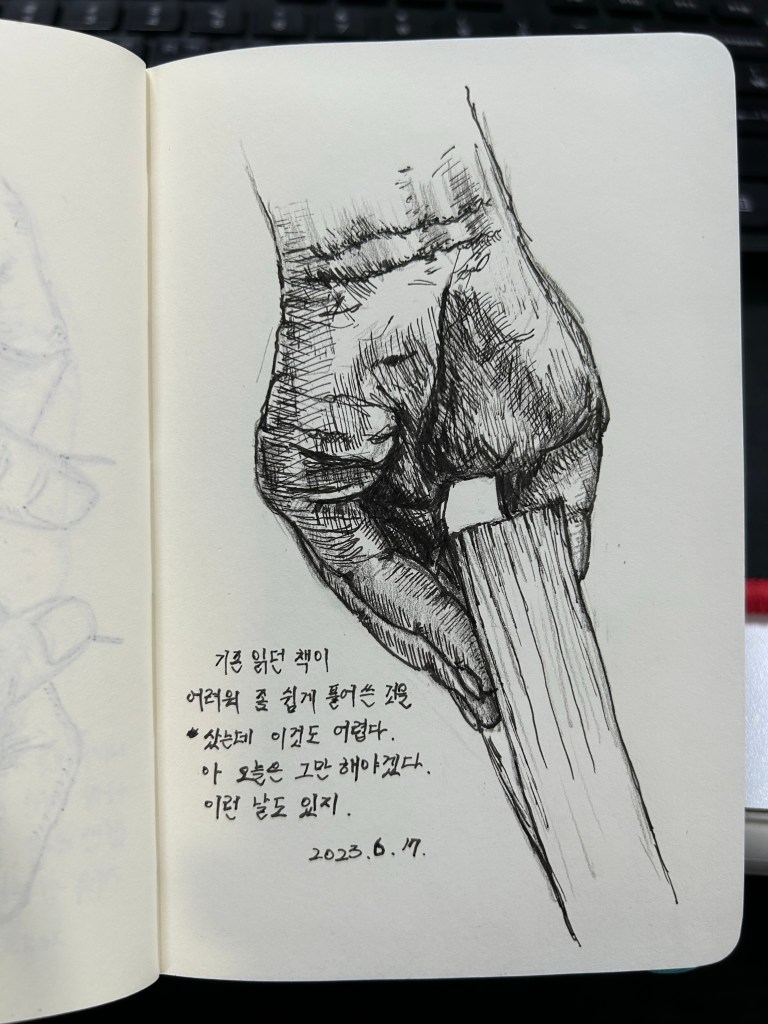 기존 읽던 책이
어려워 좀 쉽게 풀어쓴 것을
샀는데 이것도 어렵다.
아 오늘은 그만 해야겠다.
이런 날도 있지.
2023.6.17.